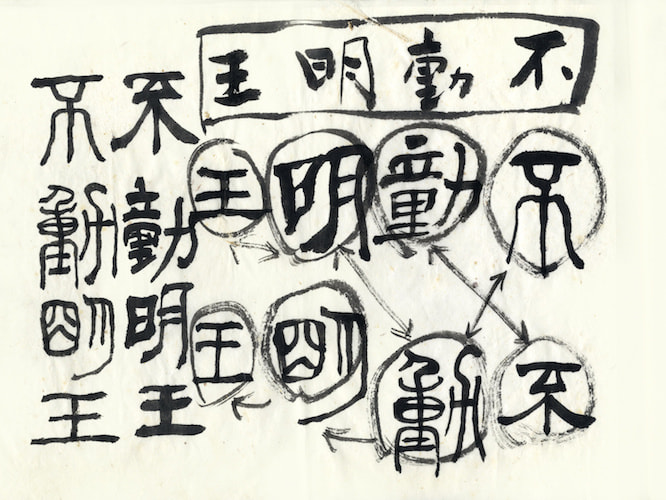 不動明王
不動明王
不動明王
不動明王
不動明王